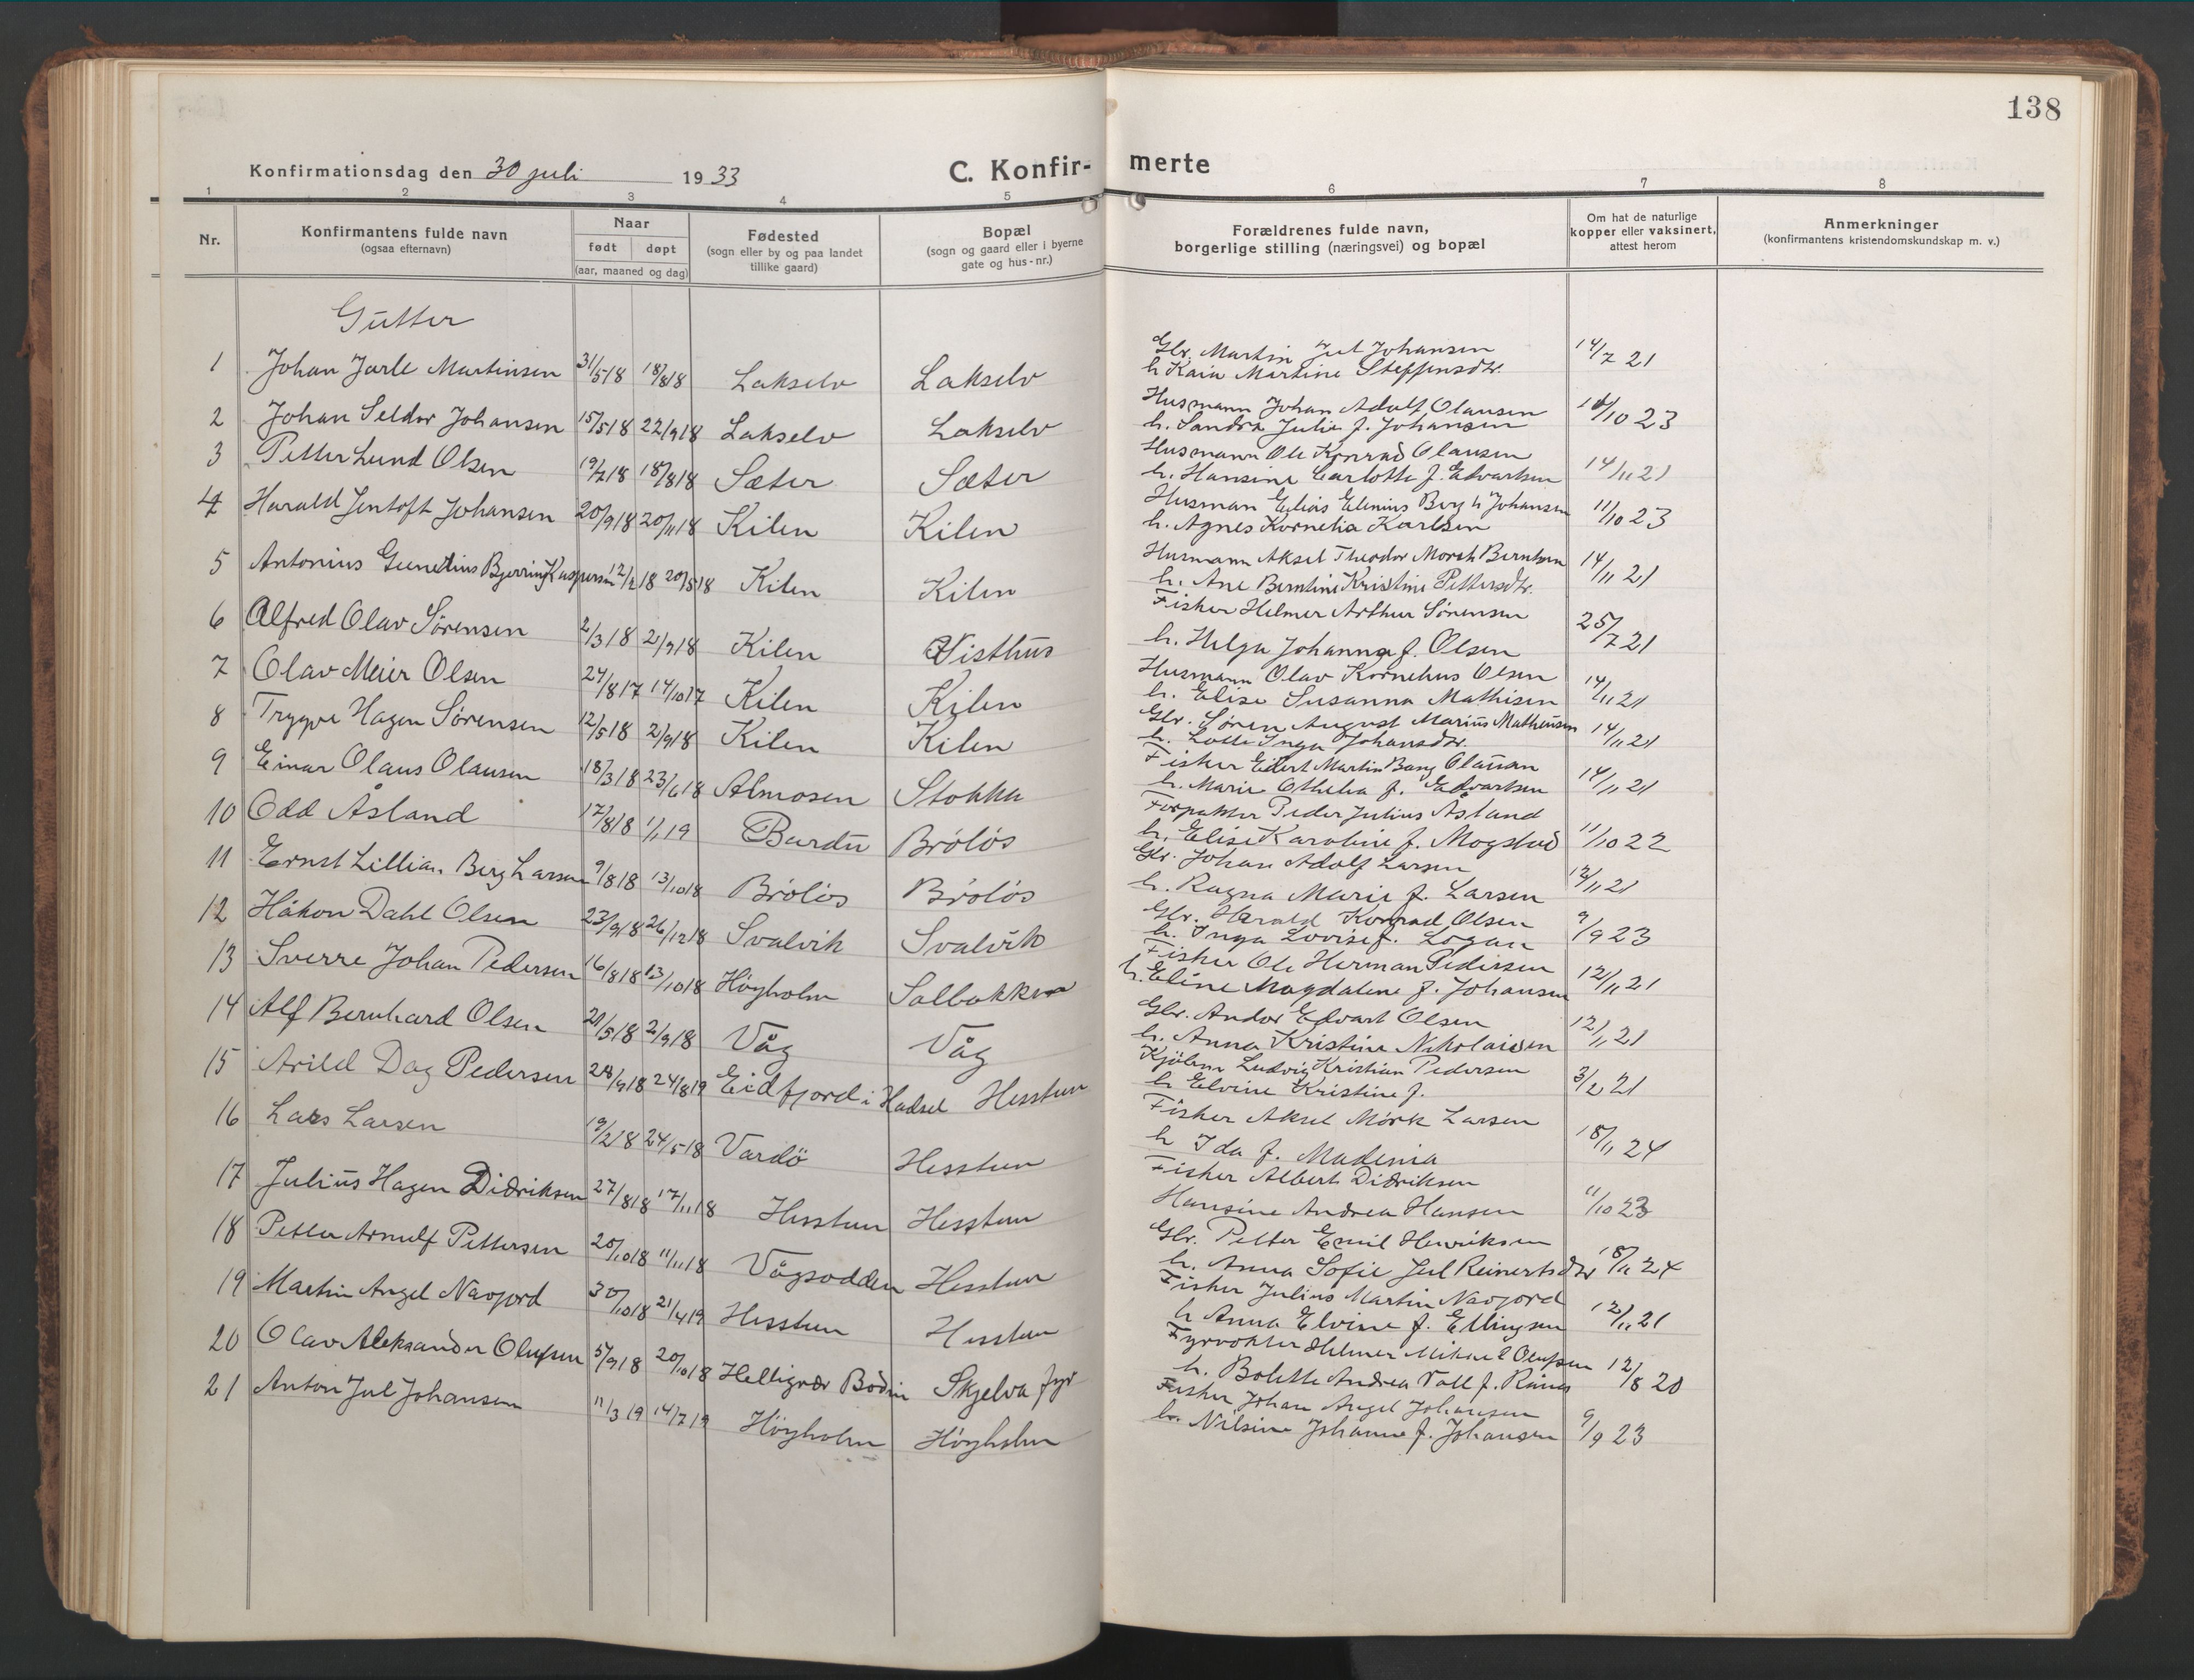 138
Konfirmationsdag den 30 juli 1933
C. Konfir- merte
1 2 3 4 5 6 7 8
Nr.
Konfirmantens fulde navn
(ogsaa efternavn)
Naar
født døpt
(aar, maaned og dag)
Fødested
(sogn eller by og paa landet
tillike gaard)
Bopæl
(sogn og gaard eller i byerne
gate og hus-nr.)
Forældrenes fulde navn,
borgerlige stilling (næringsvei) og bopæl
Om hat de naturlige
kopper eller vaksinert,
attest herom
Anmerkninger
(konfirmantens kristendomskundskap m. v.)
Gutter
1 Johan Jarle Martinsen 31/5 18 18/8 18 Lakselv Lakselv Gbr. Martin Jul Johansen 14/7 21
h Kaia Martine Steffensdtr.
2 Johan Seldor Johansen 15/5 18 22/9 18 Lakselv Lakselv Husmann Johan Adolf Olausen /10 23
h. Sandra Julie f. Johansen
3 Petter Lund Olsen 19/2 18 18/8 18 Sæter Sæter Husmann Ole Konrad Olausen 14/11 21
h. Hansine Carlotte f. Edvartsen
4 Harald Jentoft Johansen 20/9 18 20/11 18 Kilen Kilen Husman Elias Elenius Berg h Johansen 11/10 23
h. Agnes Kornelia Karlsen
5 Antonius Bjerring Kaspersen 12/2 18 20/5 18 Kilen Kilen Husmann Aksel Theodor Morch Berntsen 14/11 21
h. Ane Berntine Kristine Pettersdtr.
6 Alfred Olav Sørensen 2/3 18 2/9 18 Kilen Visthus Fisker Helmer Arthur Sørensen 25/7 21
h. Helga Johanna f. Olsen
7 Olav Meier Olsen 24/8 17 14/10 17 Kilen Kilen Husmann Olav Kornelius Olsen 14/11 21
h. Elise Susanna Mathisen
8 Trygve Hagen Sørensen 12/5 18 2/9 18 Kilen Kilen Gbr. Søren August Marius Matheusen 14/11 21
h. Lotte Inga Johansdtr.
9 Einar Olaus Olausen 18/3 18 23/6 18 Almosen Stokka Fisker Edert Martin Bang Olausen 14/11 21
h. Marie Othelia f. Edvartsen
10 Odd Åsland 17/8 18 1/1 19 Bardu Bróløs Forpakter Peder Julius Åsland 11/10 22
h. Elise Karoline f. Mogstad
11 Ernst Lillian Berg Larsen 9/8 18 13/10 18 Bróløs Bróløs Gbr. Johan Adolf Larsen 12/11 21
h. Ragna Marie f. Larsen
12 Håkon Dahl Olsen 23/9 18 26/12 18 Svalvik Svalvik Gbr. Harald Konrad Olsen 9/9 23
h. Inga Lovise f. Logan
13 Sverre Johan Pedersen 16/8 18 13/10 18 Höyholm Salbakken Fisker Ole Herman Pedersen 12/11 21
h. Eline Magdalene f. Johansen
14 Alf Bernhard Olsen 21/5 18 2/9 18 Våg Våg Gbr. Andor Edvart Olsen 12/11 21
h. Anna Kristine Nikolaisen
15 Arild Dag Pedersen 28/9 18 24/8 19 Eidfjord i Hadsel Hesstun Kjölem Ludvig Kristian Pedersen 3/2 21
h Elvine Kristine f.
16 Lars Larsen 19/2 18 24/5 18 Vardö Hesstun Fisker Aksel Mörk Larsen 18/11 24
h Ida f. Madenia
17 Julius Hagen Didriksen 27/8 18 17/11 18 Hesstun Hesstun Fisker Albert Didriksen 11/10 23
Hansine Andrea Hansen
18 Petter Arnulf Pettersen 20/10 18 11/11 18 Vågsodden Hesstun Gbr. Petter Emil Henriksen 18/11 24
h. Anna Sofie Jul Reinertsdtr
19 Martin Angel Navjord 30/10 18 21/4 19 Hesstun Hesstun Fisker Julius Martin Navjord 12/11 21
h Anna Elvine f. Ellingsen
20 Olav Aleksander Olufsen 5/9 18 20/10 18 Helligvær Bodin Skjelva fyr Fyrvokter Helmer Mikael Olufsen 12/8 20
h. Bolette Andrea Voll f. Rånes
21 Anton Jul Johansen 11/3 19 14/7 19 Höyholm Höyholm Fisker Johan Angel Johansen 9/9 23
h. Nilsine Johanne f. Johansen